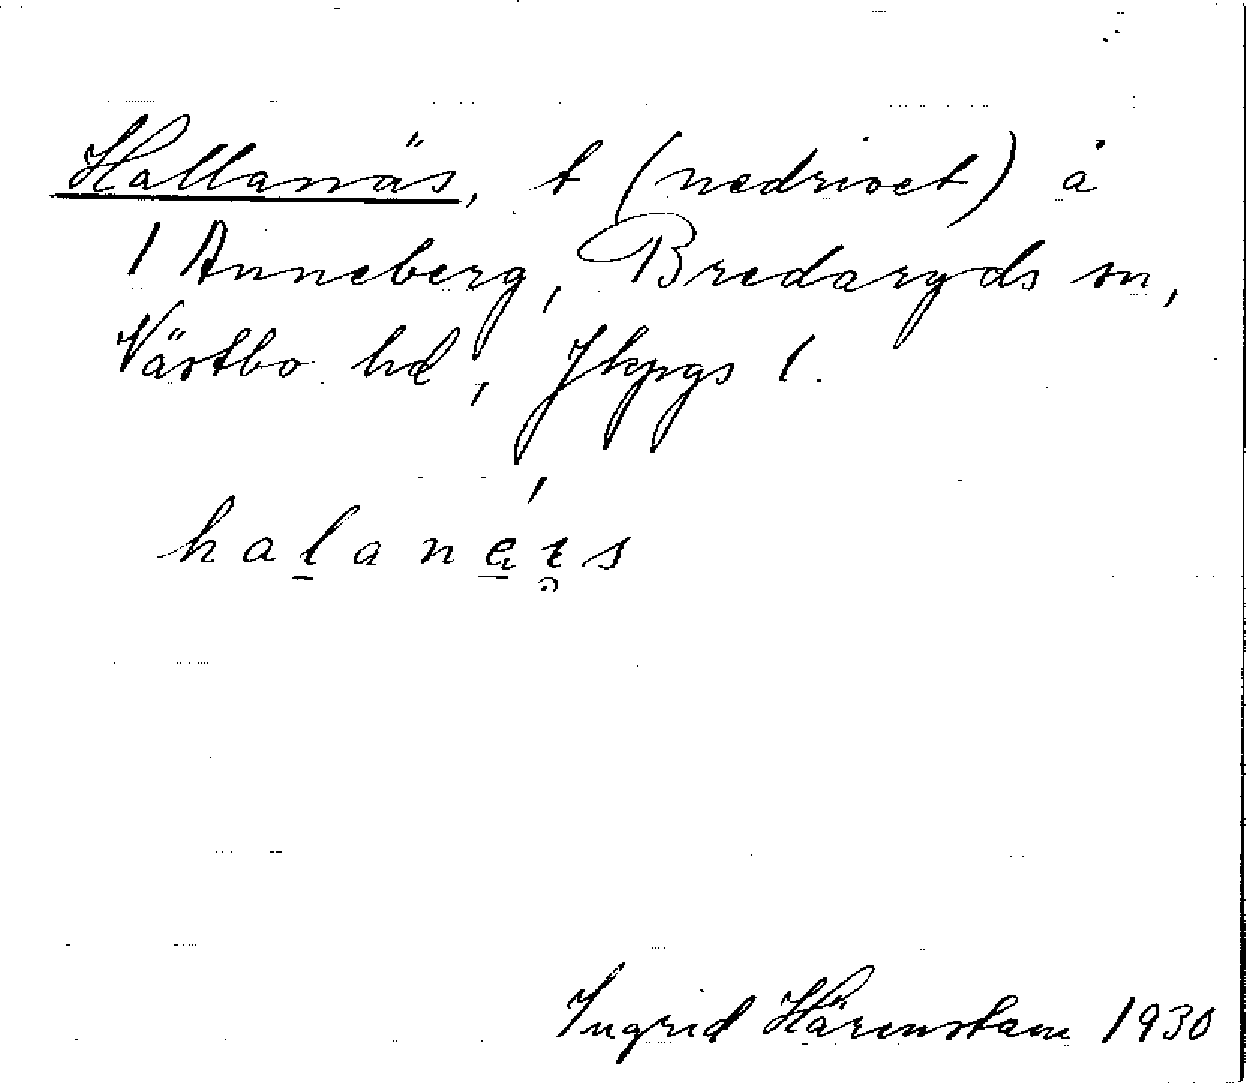 Hallanäs, t (nedrivet) å
1 Anneberg, Bredaryds sn,
Västbo hd, Jkpgs l.
Ingrid Härenstam 1930